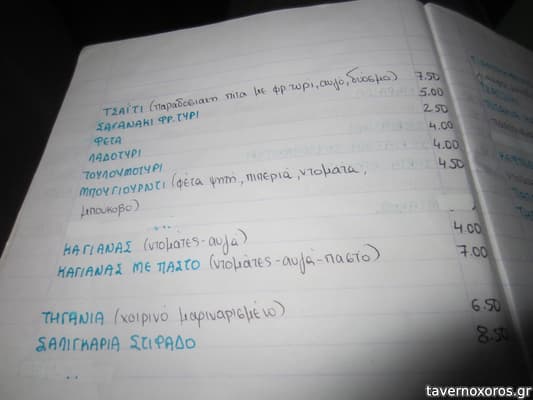 ΤΣΑΪΤΙ (παραδοσιακη πιτα με φρ.τυρι, αυγό, δυοσμο) 7.50
ΣΑΓΑΝΑΚΙ ΦΡ.ΤΥΡΙ 5.00
ΦΕΤΑ 2.50
ΛΑΔΟΤΥΡΙ 4.00
ΤΟΥΛΟΥΜΟΤΥΡΙ 4.00
ΜΠΟΥΓΙΟΥΡΝΤΙ (φέτα ψητή, πιπεριά, ντοματα, 4.50
μπουκοβο)
ΚΑΓΙΑΝΑΣ (ντομάτες-αυγά) 4.00
ΚΑΓΙΑΝΑΣ ΜΕ ΠΑΣΤΟ (ντομάτες-αυγά-παστό) 7.00
ΤΗΓΑΝΙΑ (χοιρινό μαριναρισμένο) 6.50
ΣΑΛΙΓΚΑΡΙΑ ΣΤΙΦΑΔΟ 8.50
tavernoxoros.gr